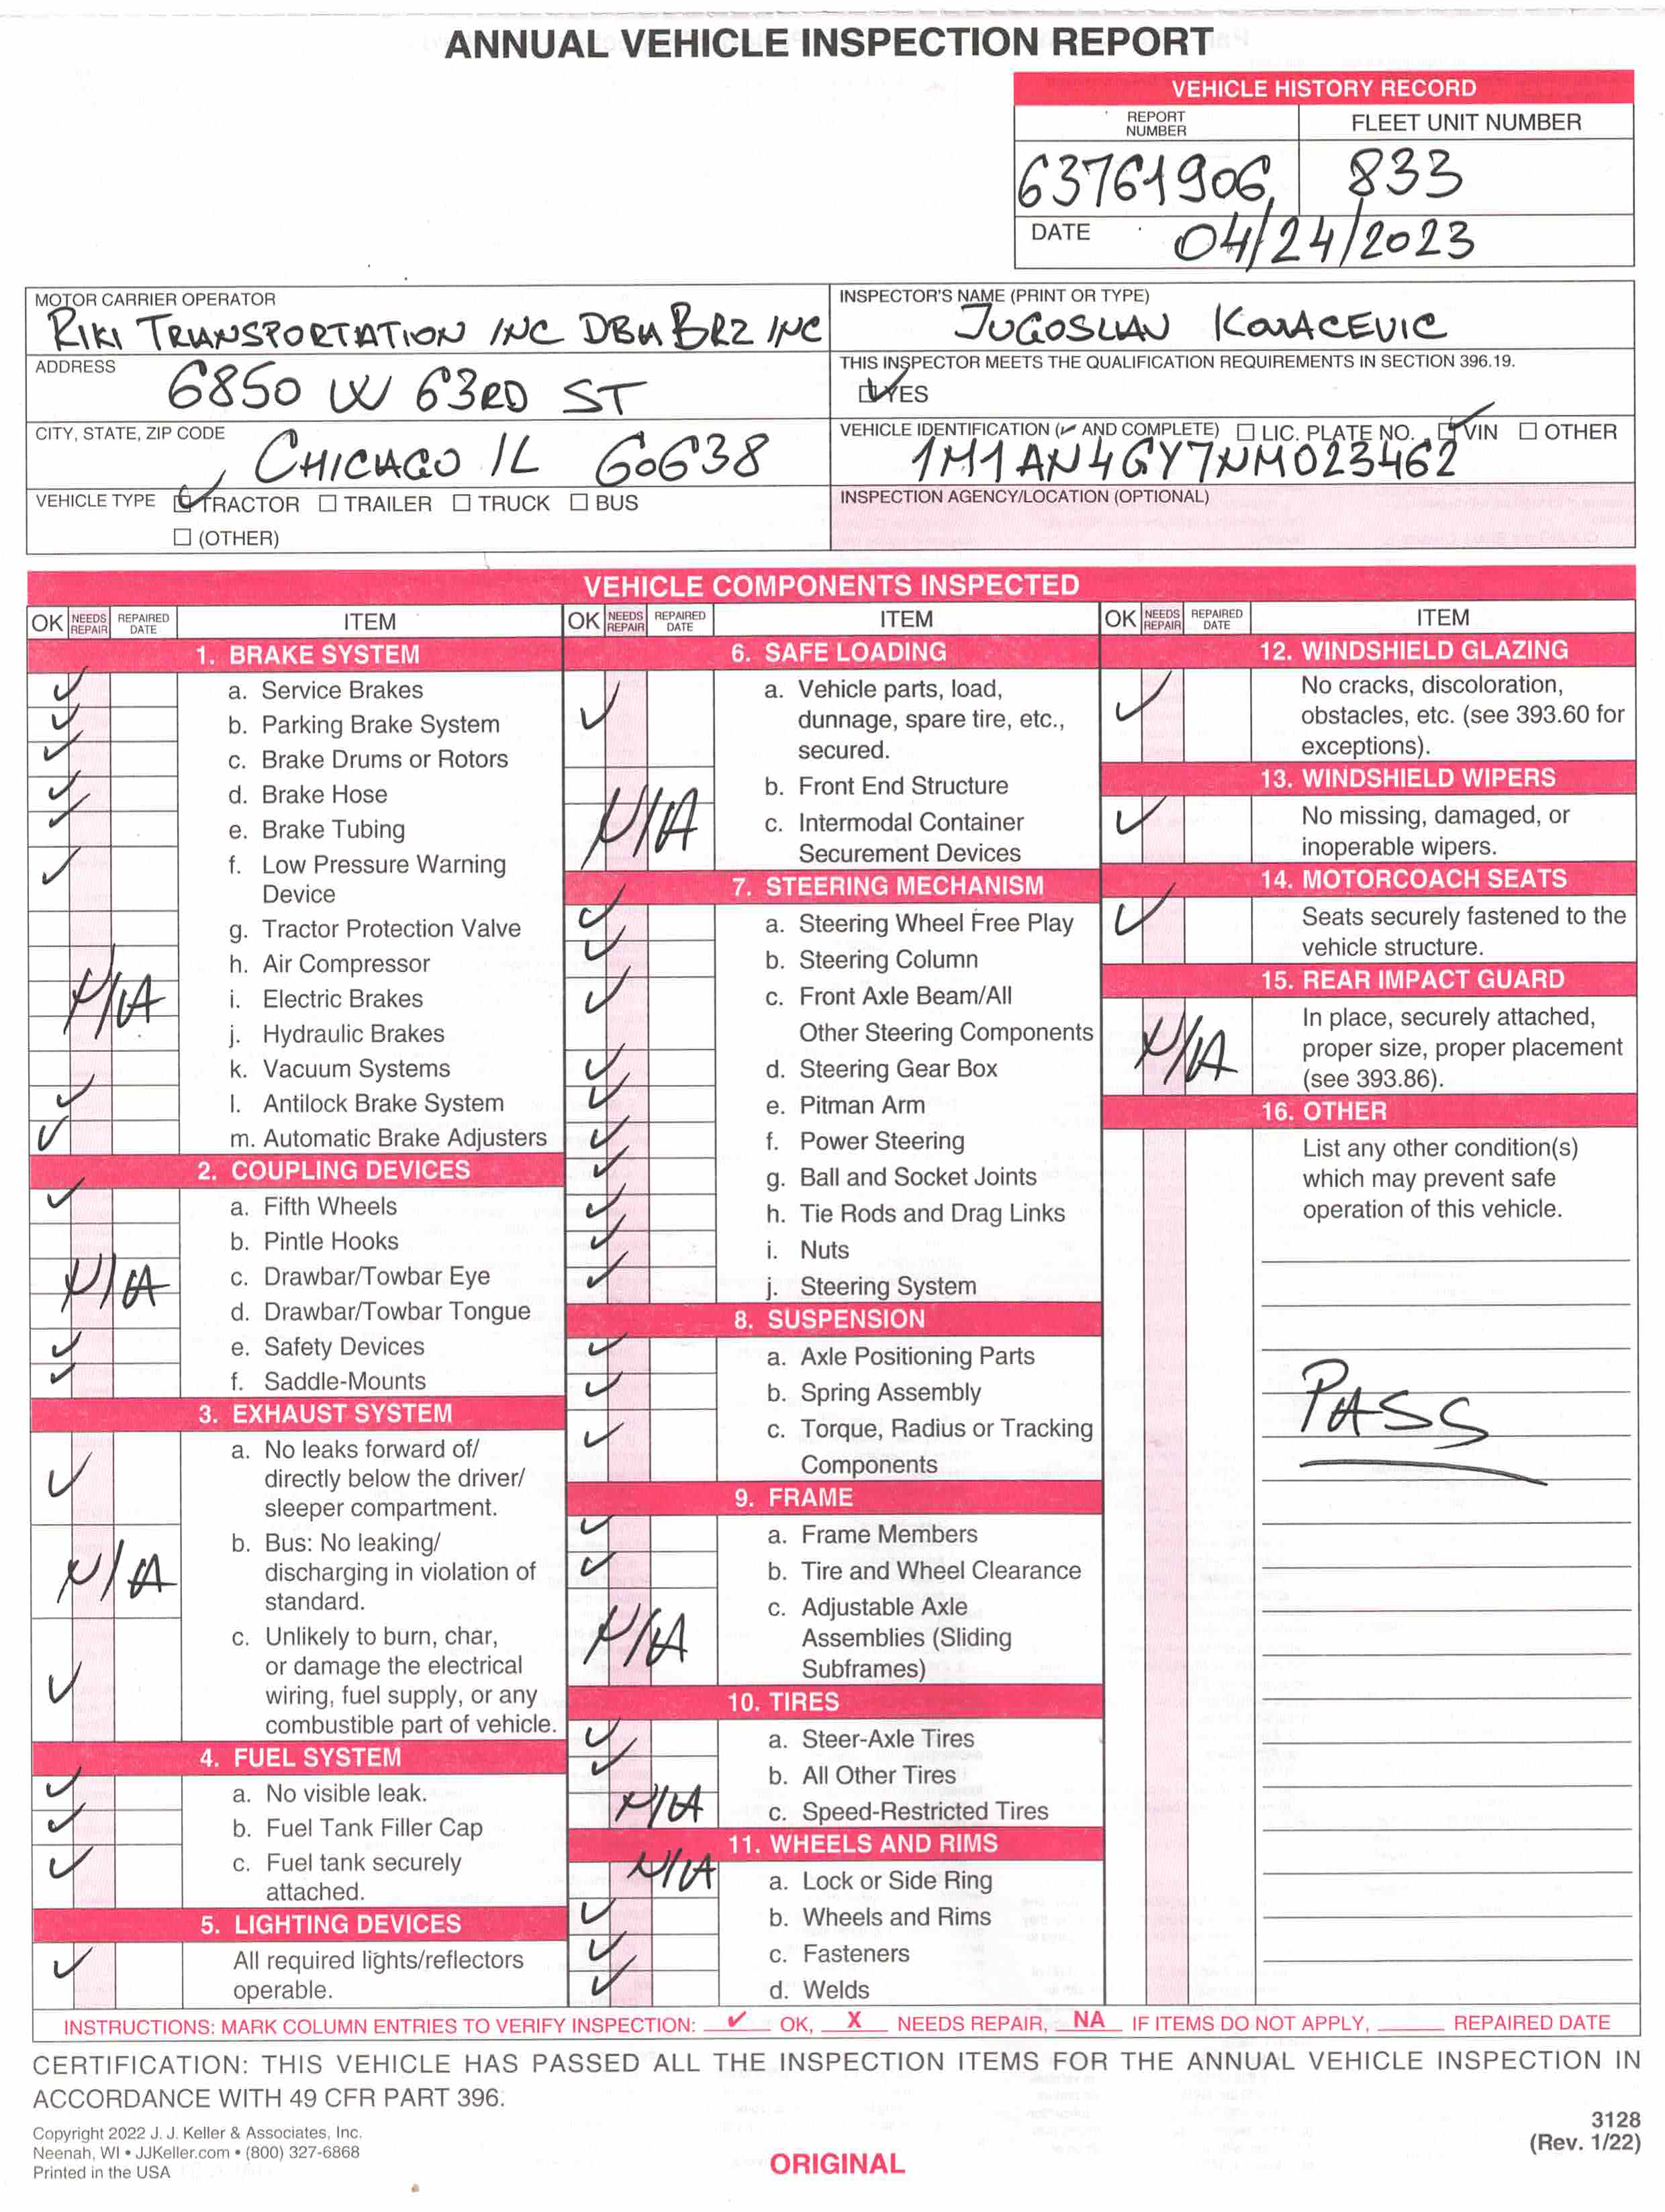 ANNUAL VEHICLE INSPECTION REPORT
VEHICLE HISTORY RECORD
REPORT NUMBER
FLEET UNIT NUMBER
63761906
833
DATE 04/24/2023
MOTOR CARRIER OPERATOR
RIKI TRANSPORTATION INC DBA BRZ INC
INSPECTOR'S NAME (PRINT OR TYPE)
JUGOSLAV KOVACEVIC
ADDRESS
6850 W 63RD ST
THIS INSPECTOR MEETS THE QUALIFICATION REQUIREMENTS IN SECTION 396.19.
✓ YES
CITY, STATE, ZIP CODE
CHICAGO IL 60638
VEHICLE IDENTIFICATION (✓ AND COMPLETE) ☐ LIC. PLATE NO. ✓ VIN ☐ OTHER
1M1AN4GY7NM023462
VEHICLE TYPE ✓ TRACTOR ☐ TRAILER ☐ TRUCK ☐ BUS
☐ (OTHER)
INSPECTION AGENCY/LOCATION (OPTIONAL)
VEHICLE COMPONENTS INSPECTED
OK NEEDS REPAIR REPAIRED DATE ITEM
1. BRAKE SYSTEM
✓ a. Service Brakes
✓ b. Parking Brake System
✓ c. Brake Drums or Rotors
✓ d. Brake Hose
✓ e. Brake Tubing
✓ f. Low Pressure Warning
Device
g. Tractor Protection Valve
h. Air Compressor
N/A i. Electric Brakes
j. Hydraulic Brakes
k. Vacuum Systems
✓ l. Antilock Brake System
✓ m. Automatic Brake Adjusters
2. COUPLING DEVICES
✓ a. Fifth Wheels
b. Pintle Hooks
N/A c. Drawbar/Towbar Eye
d. Drawbar/Towbar Tongue
✓ e. Safety Devices
✓ f. Saddle-Mounts
3. EXHAUST SYSTEM
✓ a. No leaks forward of/
directly below the driver/
sleeper compartment.
N/A b. Bus: No leaking/
discharging in violation of
standard.
✓ c. Unlikely to burn, char,
or damage the electrical
wiring, fuel supply, or any
combustible part of vehicle.
4. FUEL SYSTEM
✓ a. No visible leak.
✓ b. Fuel Tank Filler Cap
✓ c. Fuel tank securely
attached.
5. LIGHTING DEVICES
✓ All required lights/reflectors
operable.
OK NEEDS REPAIR REPAIRED DATE ITEM
6. SAFE LOADING
✓ a. Vehicle parts, load,
dunnage, spare tire, etc.,
secured.
b. Front End Structure
N/A c. Intermodal Container
Securement Devices
7. STEERING MECHANISM
✓ a. Steering Wheel Free Play
✓ b. Steering Column
✓ c. Front Axle Beam/All
Other Steering Components
✓ d. Steering Gear Box
✓ e. Pitman Arm
✓ f. Power Steering
✓ g. Ball and Socket Joints
✓ h. Tie Rods and Drag Links
✓ i. Nuts
✓ j. Steering System
8. SUSPENSION
✓ a. Axle Positioning Parts
✓ b. Spring Assembly
✓ c. Torque, Radius or Tracking
Components
9. FRAME
✓ a. Frame Members
✓ b. Tire and Wheel Clearance
N/A c. Adjustable Axle
Assemblies (Sliding
Subframes)
10. TIRES
✓ a. Steer-Axle Tires
✓ b. All Other Tires
N/A c. Speed-Restricted Tires
11. WHEELS AND RIMS
N/A a. Lock or Side Ring
✓ b. Wheels and Rims
✓ c. Fasteners
✓ d. Welds
OK NEEDS REPAIR REPAIRED DATE ITEM
12. WINDSHIELD GLAZING
✓ No cracks, discoloration,
obstacles, etc. (see 393.60 for
exceptions).
13. WINDSHIELD WIPERS
✓ No missing, damaged, or
inoperable wipers.
14. MOTORCOACH SEATS
✓ Seats securely fastened to the
vehicle structure.
15. REAR IMPACT GUARD
N/A In place, securely attached,
proper size, proper placement
(see 393.86).
16. OTHER
List any other condition(s)
which may prevent safe
operation of this vehicle.
PASS
INSTRUCTIONS: MARK COLUMN ENTRIES TO VERIFY INSPECTION: ✓ OK, X NEEDS REPAIR, NA IF ITEMS DO NOT APPLY, ____ REPAIRED DATE
CERTIFICATION: THIS VEHICLE HAS PASSED ALL THE INSPECTION ITEMS FOR THE ANNUAL VEHICLE INSPECTION IN
ACCORDANCE WITH 49 CFR PART 396.
Copyright 2022 J. J. Keller & Associates, Inc.
Neenah, WI • JJKeller.com • (800) 327-6868
Printed in the USA
ORIGINAL
3128
(Rev. 1/22)